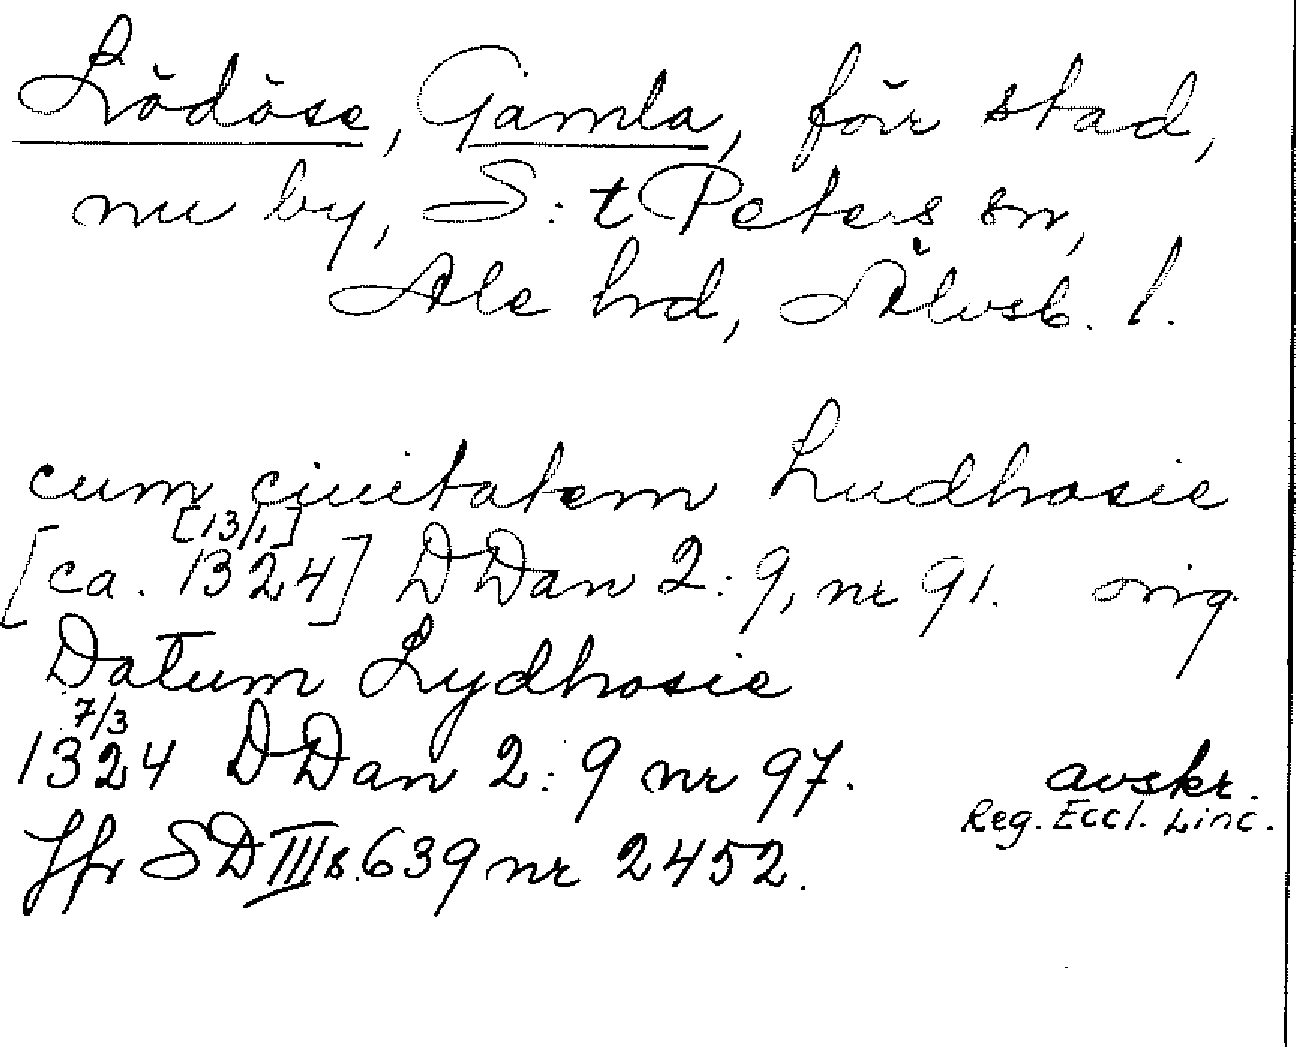 Lödöse, Gamla, förr stad,
nu by, S:t Peters sn,
Ale hrd, Älvsb. l.
cum ciuitatem Ludhosie
[13/1]
[ca. 1324] DDan 2:9, nr 91. orig.
Datum Lydhosie
7/3
1324 DDan 2:9 nr 97. avskr.
Reg. Eccl. Linc.
Jfr SD III s. 639 nr 2452.